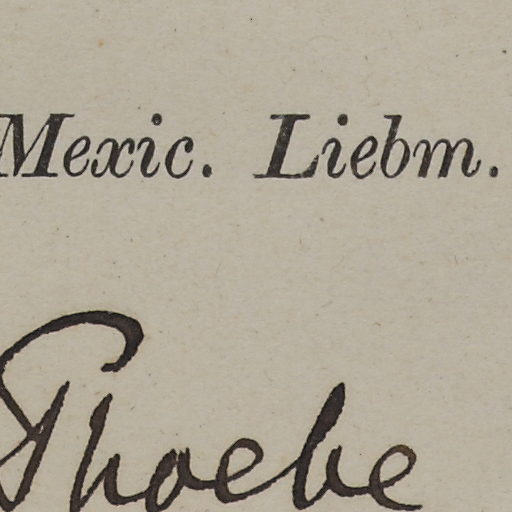 Mexic. Liebm.
Phoebe